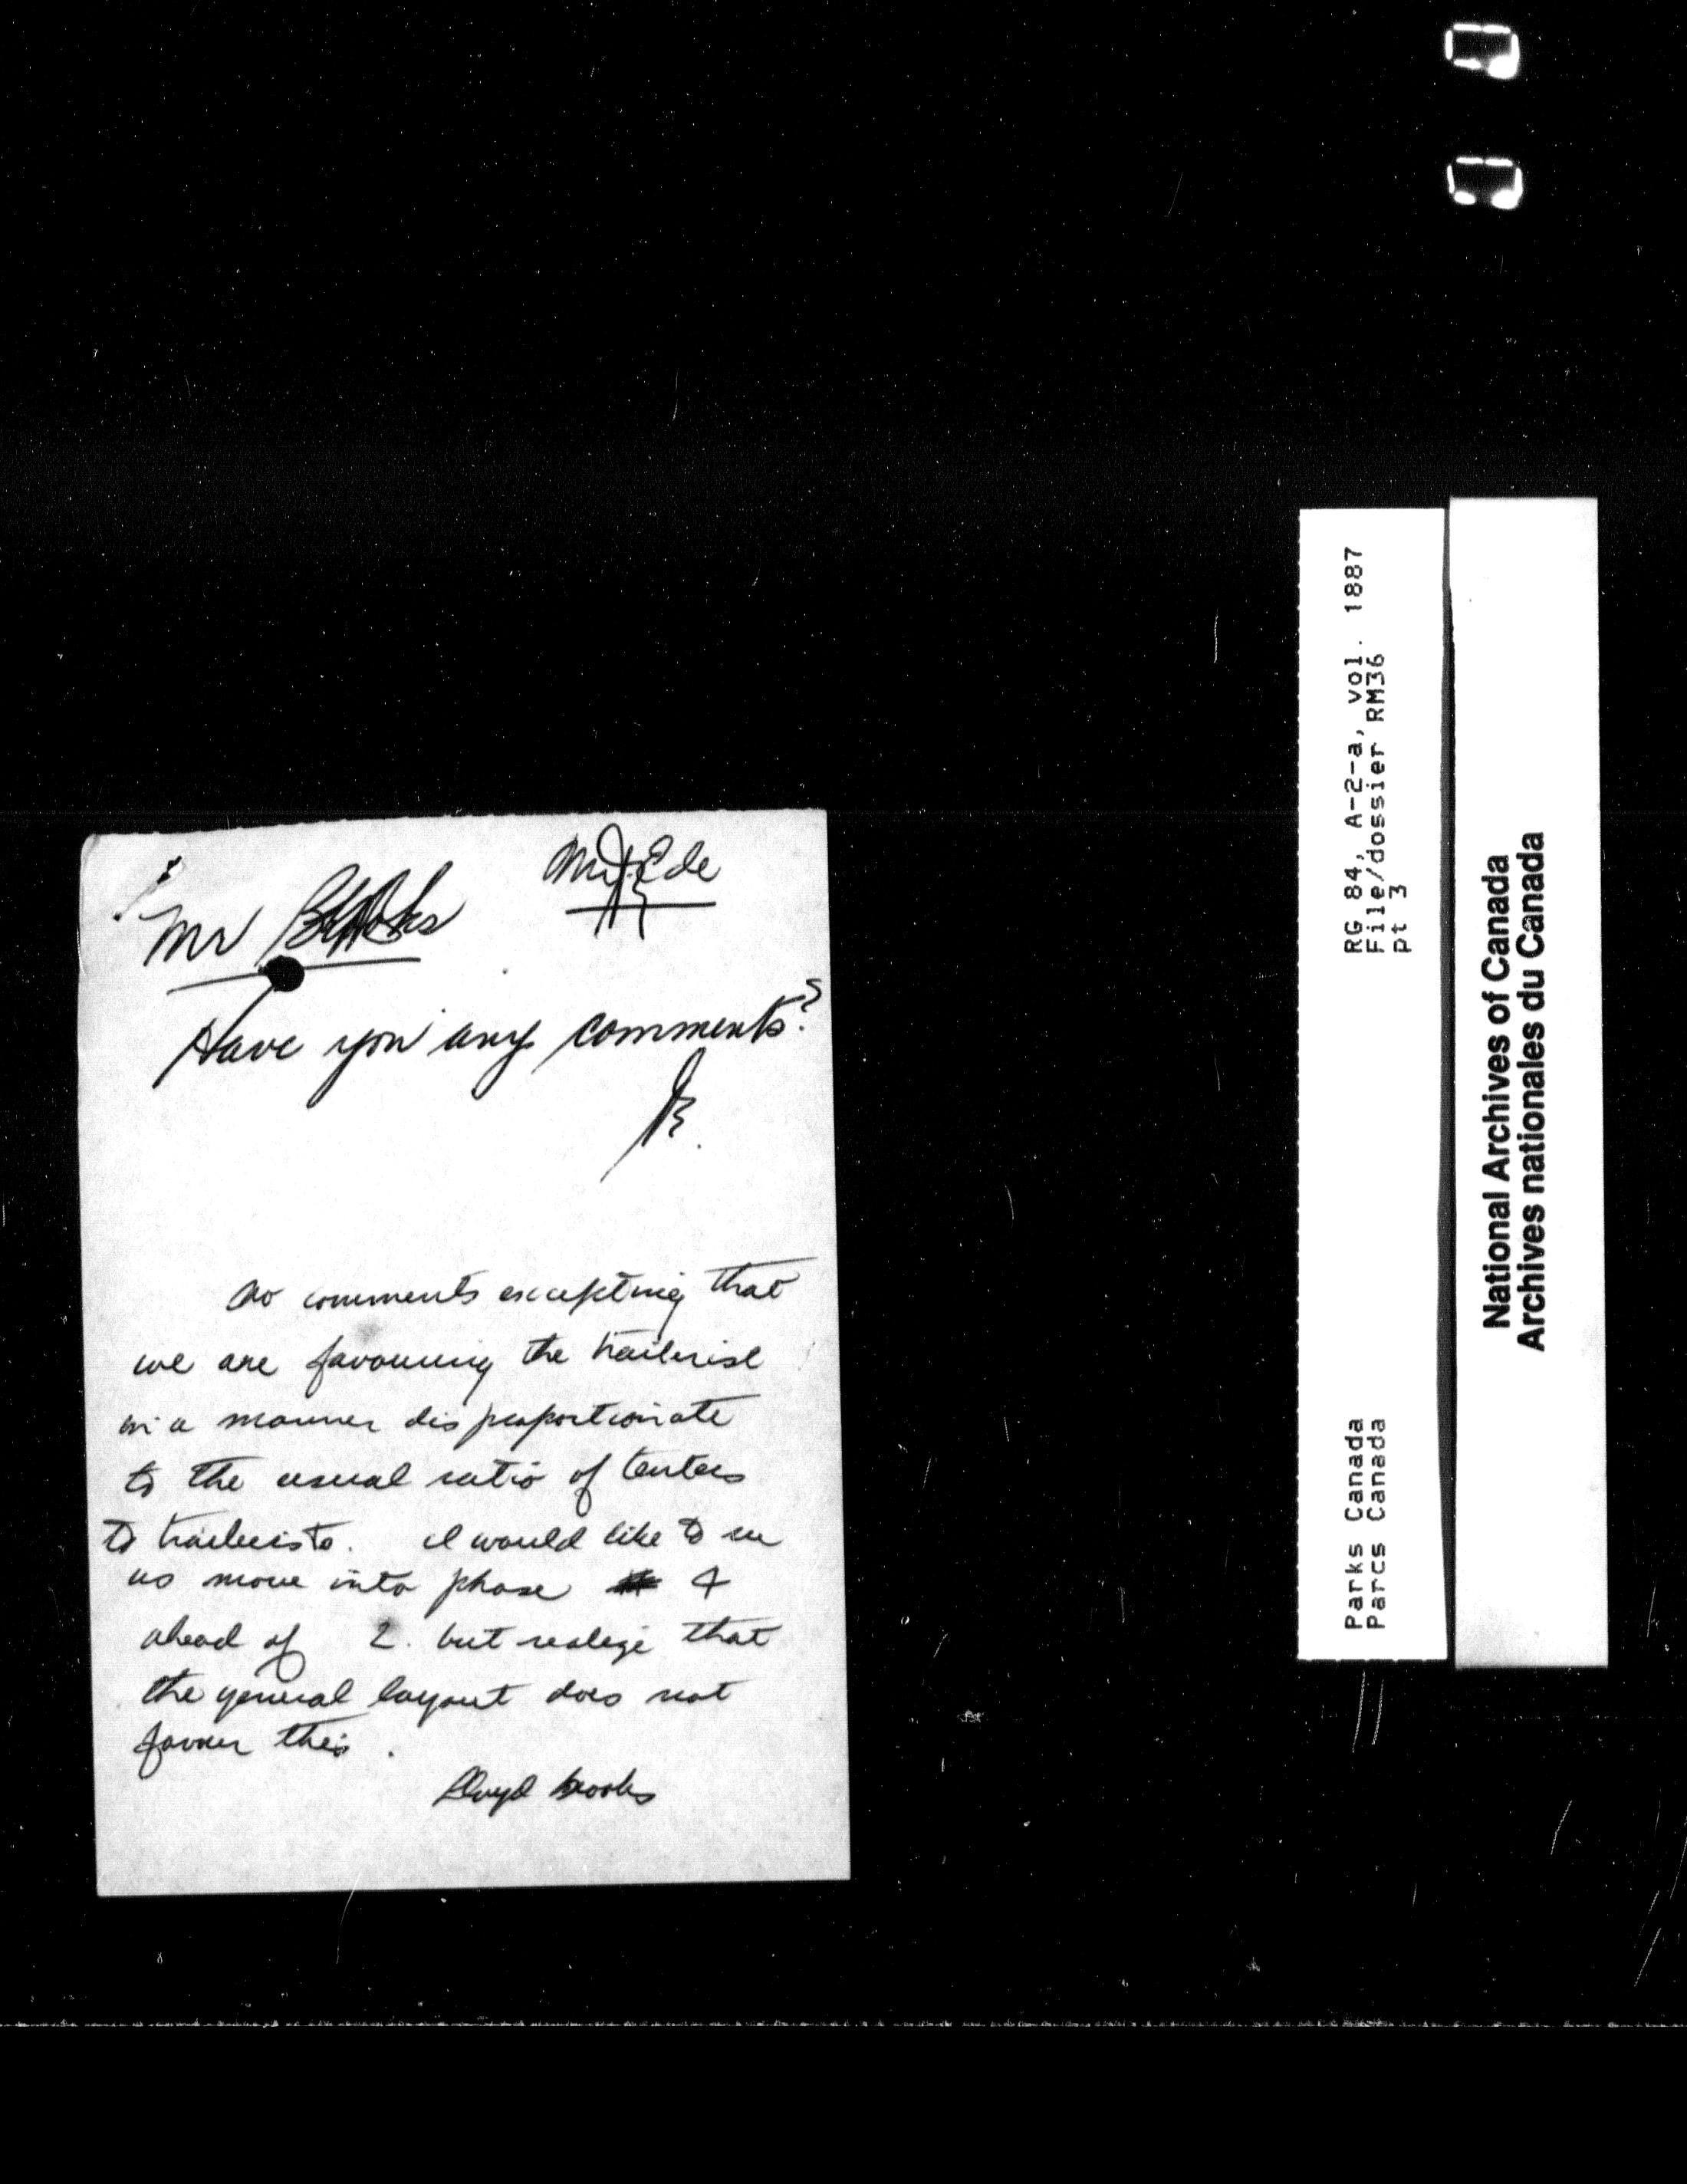 Mr Ede
Mr Brooks
Have you any comments?
No comments excepting that
we are favouring the trailerist
in a manner disproportionate
to the usual ratio of tenters
to trailerists. I would like to see
us move into phase 4
ahead of 2. but realize that
the general layout does not
favour this.
Lloyd Brooks
RG 84, A-2-a, vol. 1887
File/dossier RM36
pt 3
Parks Canada
Parcs Canada
National Archives of Canada
Archives nationales du Canada